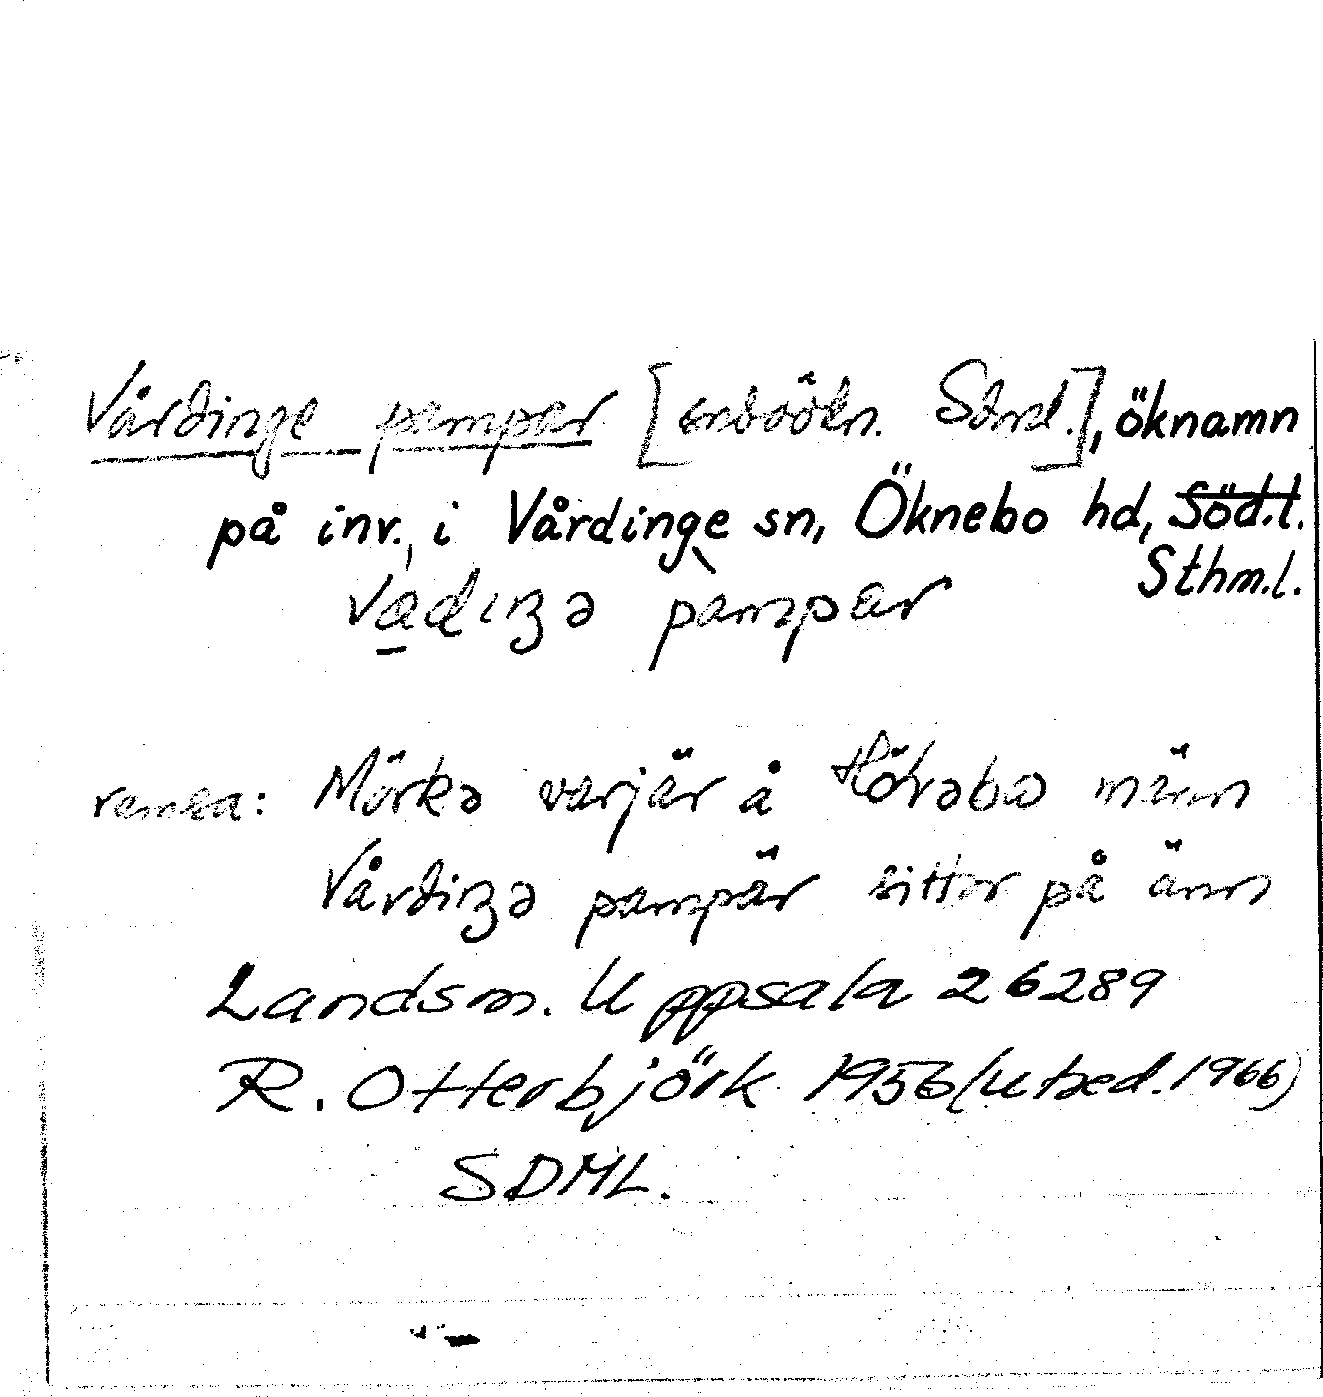 Vårdinge pampar [snböökn. Sdml.], öknamn
på inv. i Vårdinge sn, Öknebo hd, Söd.t.
Sthm.l.
vadıŋə pampar
ramsa: Mörkə varjär å Hölvəbo männ
Vårdiŋə pampär sittor på änn
Landsm. Uppsala 26289
R. Otterbjörk 1956 (utxed. 1966)
SDML.